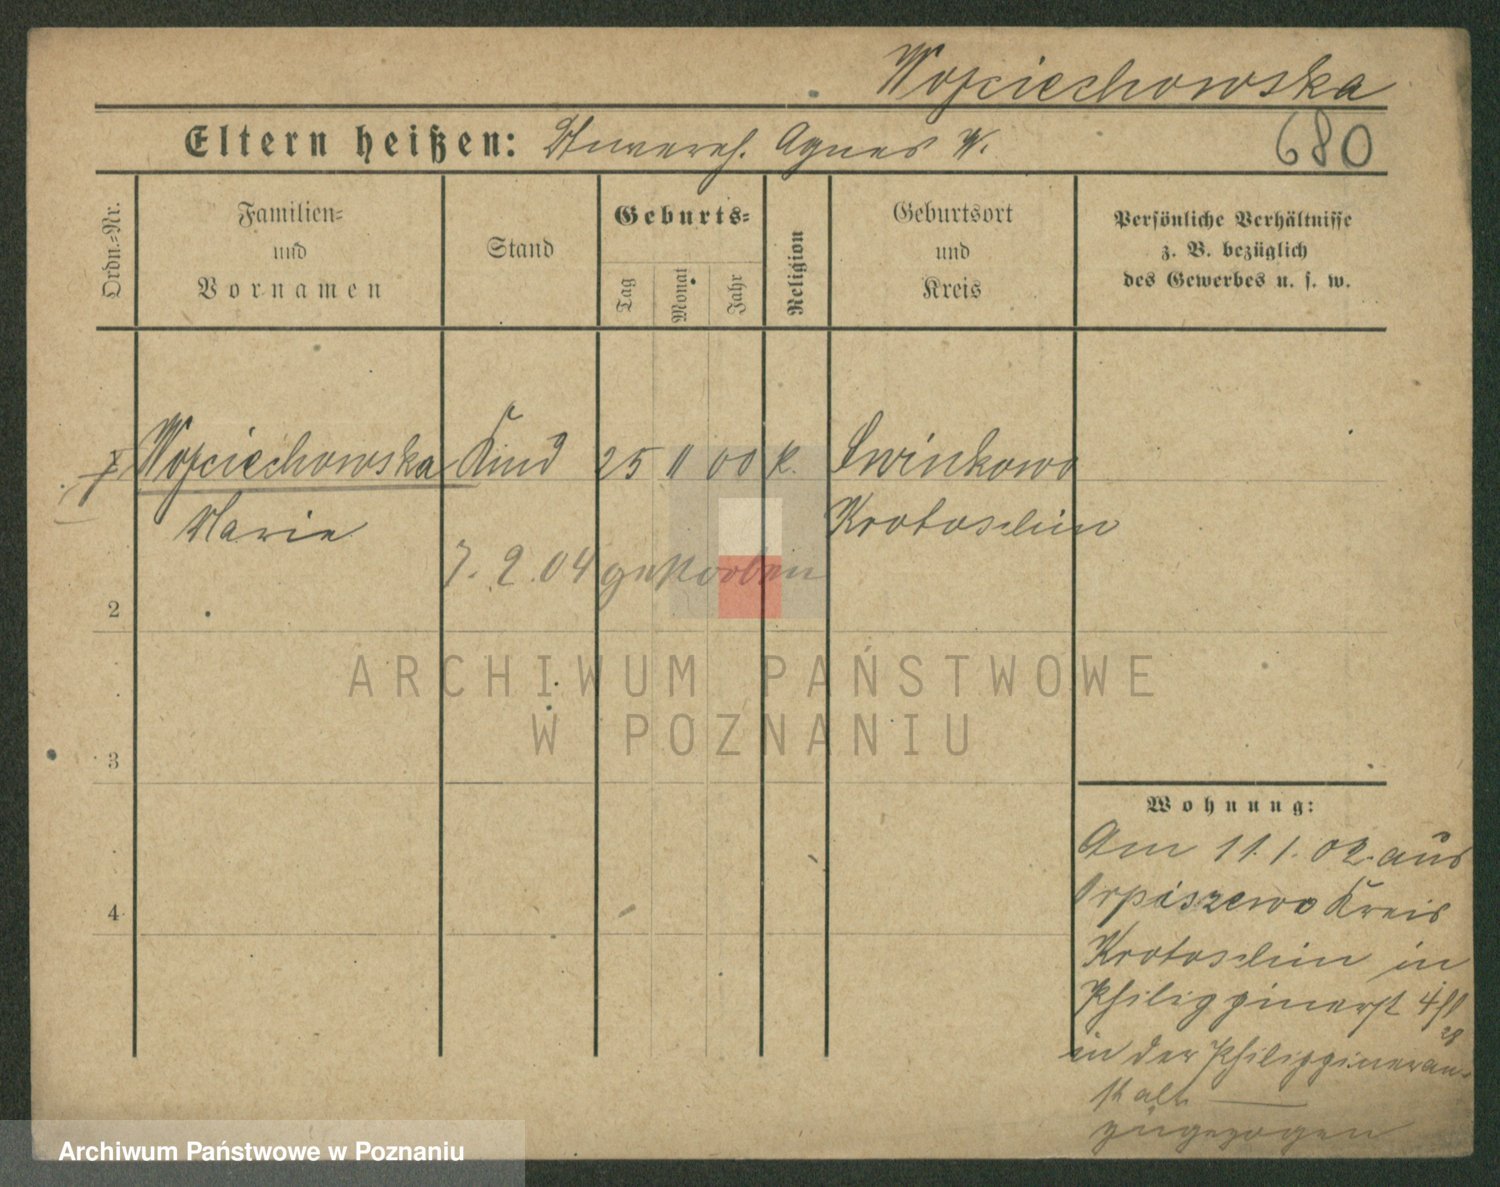 Wojciechowska
Eltern heißen: Unvereh. Agnes W. 680
Ordn.-Nr.
Familien-
und
Vornamen
Stand
Geburts-
Tag
Monat
Jahr
Religion
Geburtsort
und
Kreis
Persönliche Verhältnisse
z. B. bezüglich
des Gewerbes u. s. w.
Wojciechowska Kind 25 11 00 k. Swinkowo
Marie Krotoschin
7. 2. 04 gestorben
2
3
4
ARCHIWUM PAŃSTWOWE
W POZNANIU
Wohnung:
Am 11. 1. 02. aus
Orpiszewo Kreis
Krotoschin in
Philippinerst
in der Philippineran-
stalt
zugezogen
Archiwum Państwowe w Poznaniu